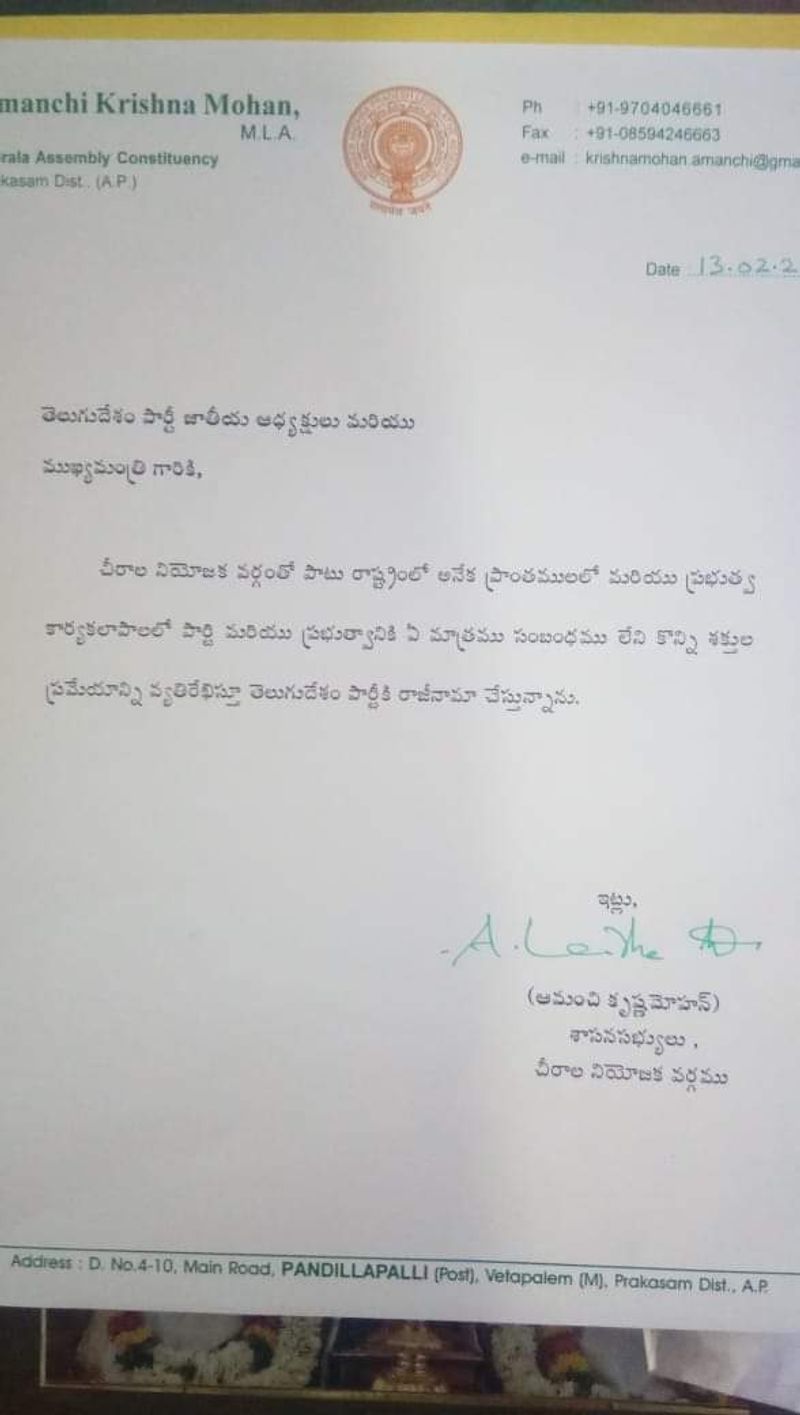 manchi Krishna Mohan,
M.L.A.
rala Assembly Constituency
kasam Dist., (A.P.)
Ph : +91-9704046661
Fax : +91-08594246663
e-mail : krishnamohan.amanchi@gma
सत्यमेव जयते
Date : 13.02.2
తెలుగుదేశం పార్టీ జాతీయ అధ్యక్షులు మరియు
ముఖ్యమంత్రి గారికి,
చీరాల నియోజక వర్గంతో పాటు రాష్ట్రంలో అనేక ప్రాంతములలో మరియు ప్రభుత్వ
కార్యకలాపాలలో పార్టి మరియు ప్రభుత్వానికి ఏ మాత్రము సంబంధము లేని కొన్ని శక్తుల
ప్రమేయాన్ని వ్యతిరేఖిస్తూ తెలుగుదేశం పార్టీకి రాజీనామా చేస్తున్నాను.
ఇట్లు,
(ఆమంచి కృష్ణమోహన్)
శాసనసభ్యులు ,
చీరాల నియోజక వర్గము
Address : D. No.4-10, Main Road, PANDILLAPALLI (Post), Vetapalem (M), Prakasam Dist., A.P.